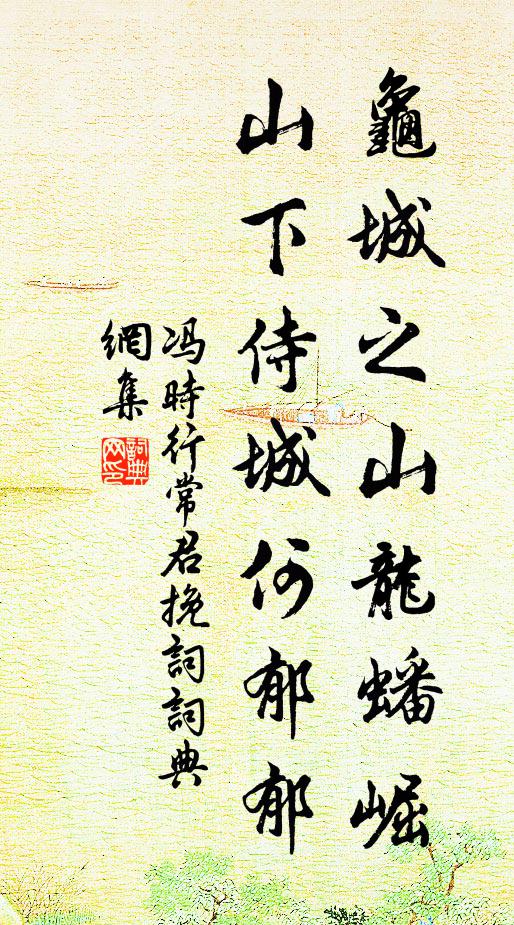 龜城之山龍蟠崛
山下侍城何郁郁
冯時行常君挽詞詞典
網集
詞典
网印